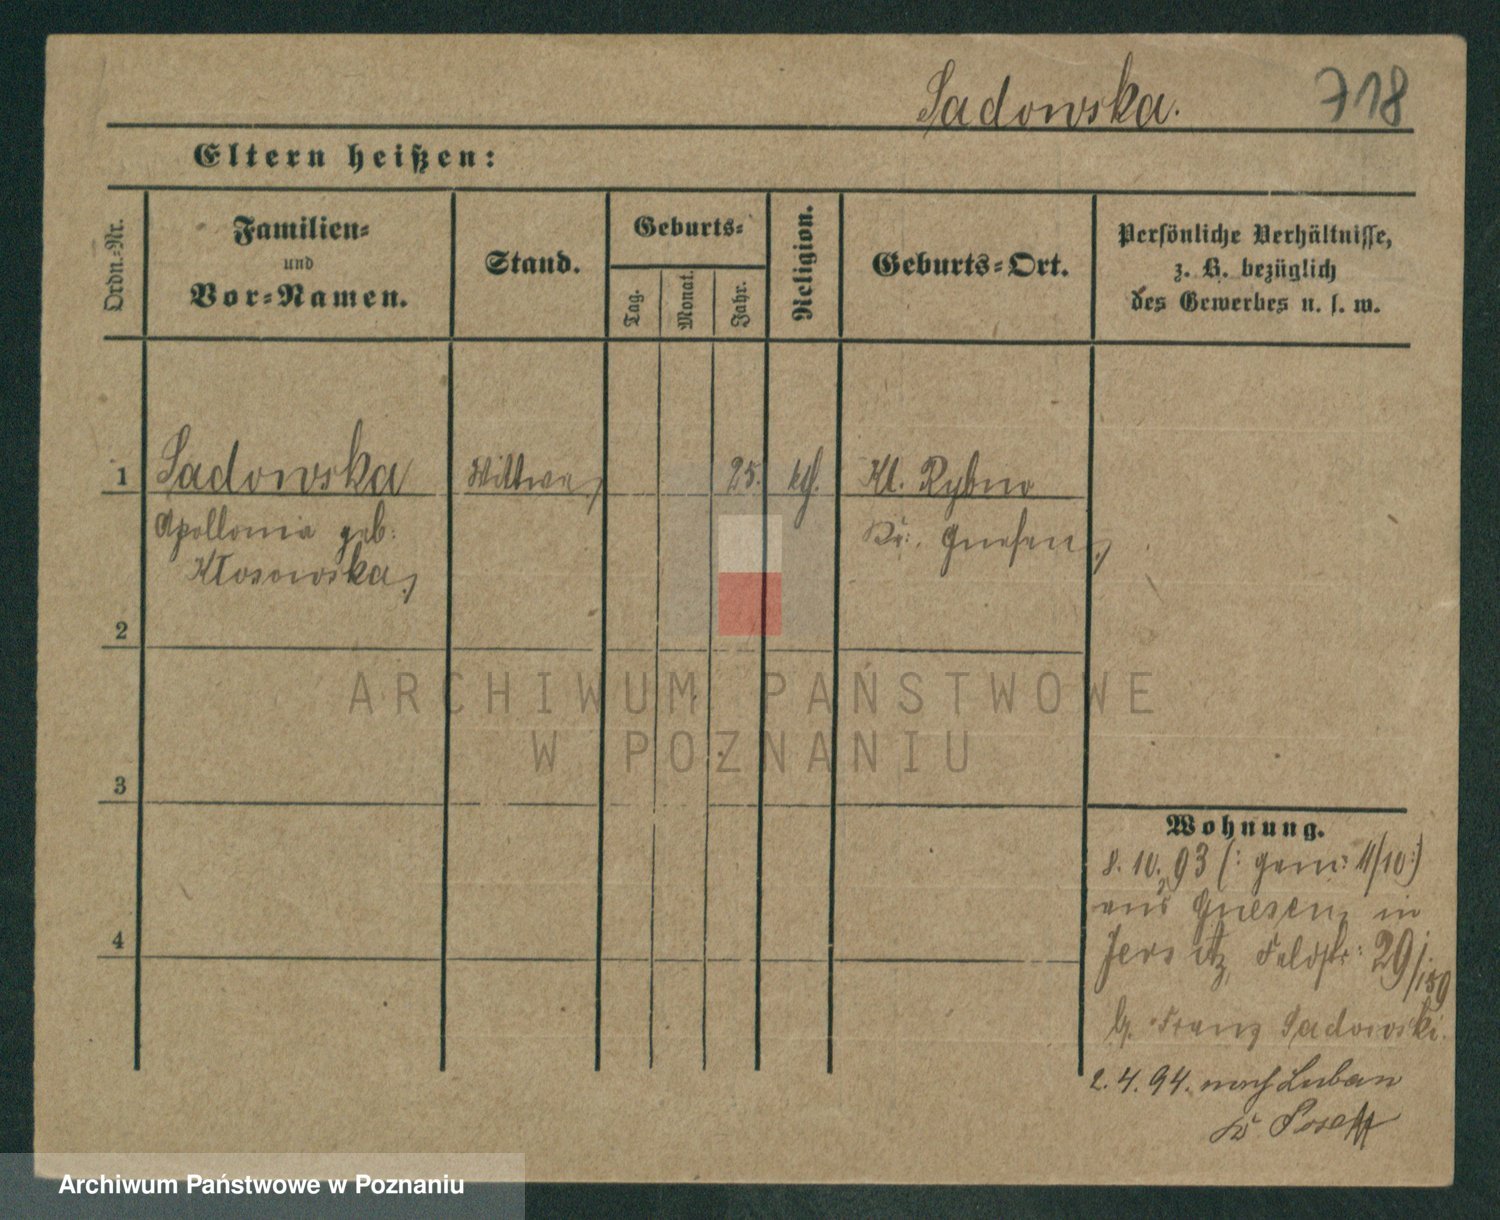 Sadowska. 718
Eltern heißen:
Ordn.-Nr.
Familien-
und
Vor-Namen.
Stand.
Geburts-
Tag.
Monat.
Jahr.
Religion.
Geburts-Ort.
Persönliche Verhältnisse,
z. B. bezüglich
des Gewerbes u. s. w.
1 Sadowska Wittwe 25. kth. Kl. Rybno
Apollonia geb: Kr: Gnesen
Kłosowska
2
3
4
Wohnung.
8. 10. 93 (: gem: 11/10:)
aus Gnesen, in
Jersitz, Feldstr: 29/159
b. Franz Sadowski.
2. 4. 94. nach Luban
Kr
ARCHIWUM PAŃSTWOWE
W POZNANIU
Archiwum Państwowe w Poznaniu